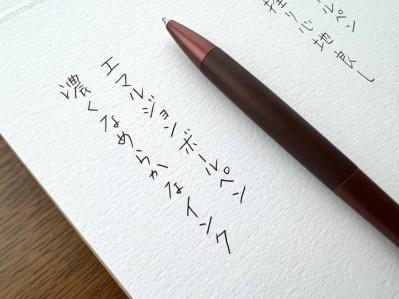 ルペン
握り心地良し
エマルジョンボールペン
濃くなめらかなインク